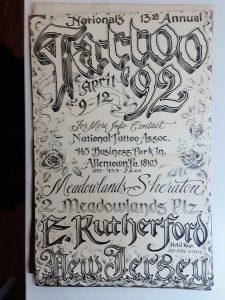 Nationals 13th Annual
Tattoo
April '92
9-12
For More Info Contact
National Tattoo Assoc.
465 Business Park Ln.
Allentown, Pa. 18103
215-433-7261
Meadowlands Sheraton
2 Meadowlands Plz
E. Rutherford
Hotel Rsv.
New Jersey